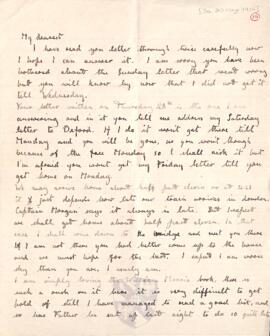 My dearest
I have read you letter through twice carefully now
I hope I can answer it. I am sorry you have been
bothered about the Sunday letter that went wrong
but you will know by now that I did not get it
till Wednesday.
Your letter written on Thursday is the one I am
answering and in it you tell me address my Saturday
letter to Oxford. If I do it wont get there till
Monday and you will be gone, or you wont though
because of the so I shall risk it but
I'm afraid you wont get my Friday letter till you
get home on Monday.
We may arrive home about half past eleven or at
it just depends how late our train arrives in London.
Captain Morgan says it always is late. But I expect
we shall get home about half past eleven. In that
case I shall come down to the bridge and meet you there
If I am not then you had better come up to the house
and we must hope for the best. I expect I am more
shy than you are. I usely am.
I am simply loving the book, there is
such a rush on it here it is very difficult to get
hold of still I have managed to read a good bit, and
so has Father he sat up last night to do 10